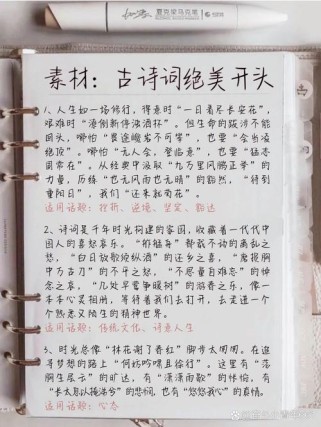 素材：古诗词绝美开头
1、人生如一场修行，得意时“一日看尽长安花”，
艰难时“潦倒新停浊酒杯”。但生命的跋涉不能
回头，哪怕“畏途巉岩不可攀”，也要“会当凌
绝顶”。哪怕“无人会，登临意”，也要“猛志
固常在”。从经典中汲取“九万里风鹏正举”的
力量，历练“也无风雨也无晴”的豁然，“待到
重阳日”，我们“还来就菊花”。
适用话题：挫折、逆境、坚笑、豁达
2、诗词是千年时光构建的家园，收藏着一代代中
国人的喜怒哀乐。
“白日放歌须纵酒”的还乡之喜，“磨损胸
中万古刀”的不平之怒，“不思量自难忘”的悼
念之哀，“几处早莺争暖树”的游春之乐，像一
本本心灵相册，等待着我们去打开，去走进一个
个熟悉又陌生的精神世界。
适用话题：传统文化、诗意人生
3、时光总像“林花谢了春红”脚步太匆匆。在追
寻梦想的路上“何妨吟啸且徐行”。这里有“荡
胸生层云”的旷达，有“潇潇雨歇”的怜悯，有
“长太息以掩涕兮”的悲悯，也有“悠悠我心”的真情。
适用话题：心态